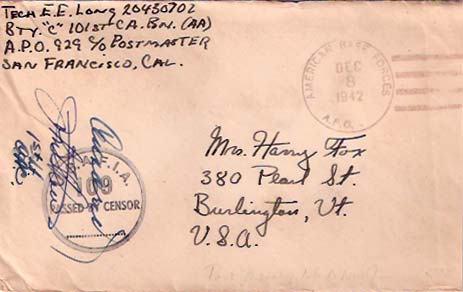 Tech E.E. Long 20430702
Bty. "C" 101st CA. Bn. (AA)
A.P.O. 929 c/o Postmaster
San Francisco, Cal.
AMERICAN BASE FORCES
DEC
8
1942
A.P.O.
1st Lt.
F.I.A.
109
PASSED BY CENSOR
Mrs. Harry Fox
380 Pearl St.
Burlington, Vt.
U.S.A.